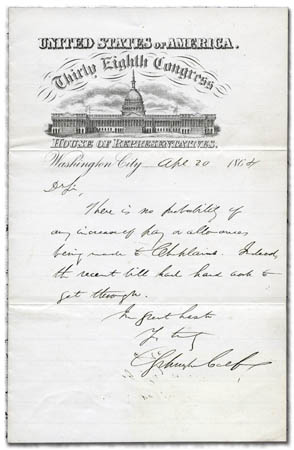 UNITED STATES OF AMERICA.
Thirty Eighth Congress
HOUSE OF REPRESENTATIVES.
Washington City Apl 20 1864
D Sir,
There is no probability of
any increase of pay or allowances
being made to Chaplains. Indeed,
the recent bill had hard work to
get through.
In great haste
Yrs truly
Colfax